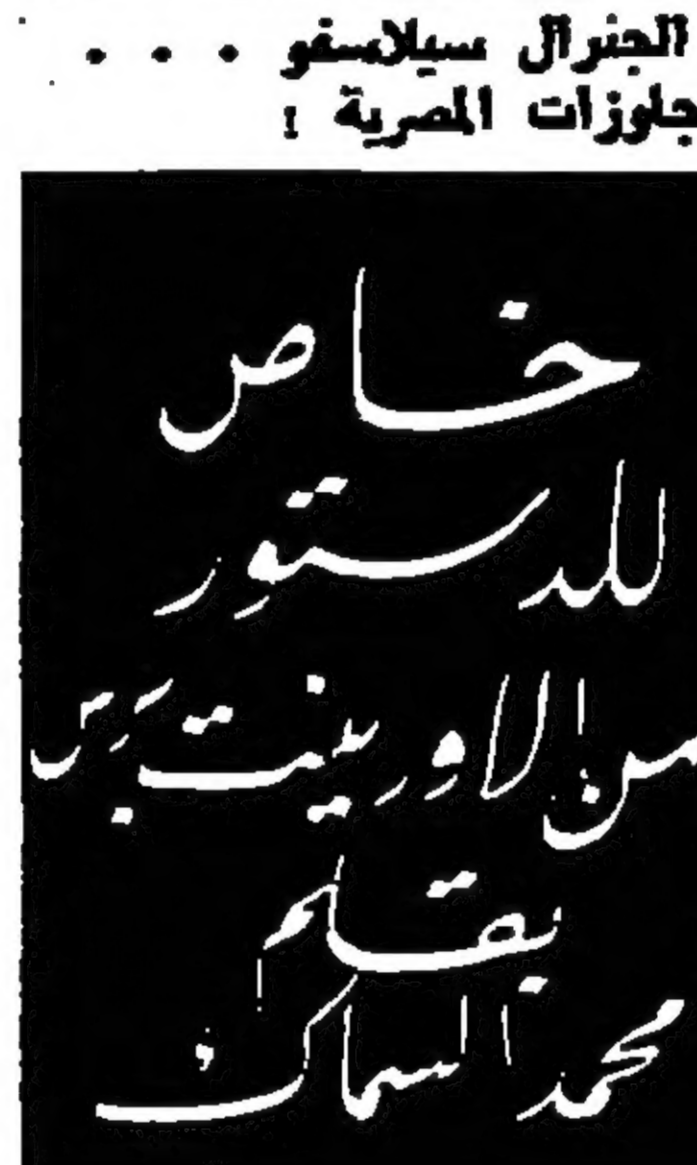 الجنرال سيلاسفو . . .
جاوزات المصرية !
خاص
للدستور
من الاورينت برس
بقلم
محمد السماك